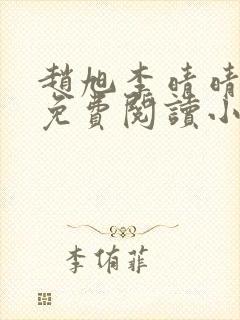 趙旭李晴晴
免費閱讀小
李侑菲